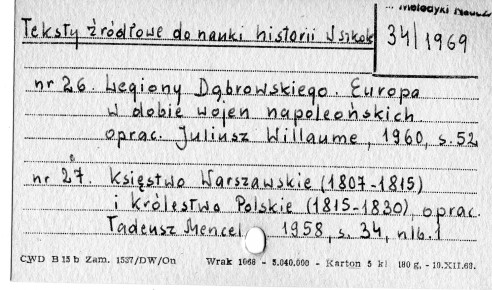 ... Metodyki Naucz.
Teksty źródłowe do nauki historii w szkole
34/1969
nr 26. Legiony Dąbrowskiego. Europa
w dobie wojen napoleońskich.
oprac. Juliusz Willaume, 1960, s. 52
nr 27. Księstwo Warszawskie (1807-1815)
i Królestwo Polskie (1815-1830), oprac.
Tadeusz Mencel 1958, s. 34, nlb. 1
CWD B 15 b Zam. 1537/DW/On Wrak 1068 - 5.040.000 - Karton 5 kl 180 g. - 10.XII.68.